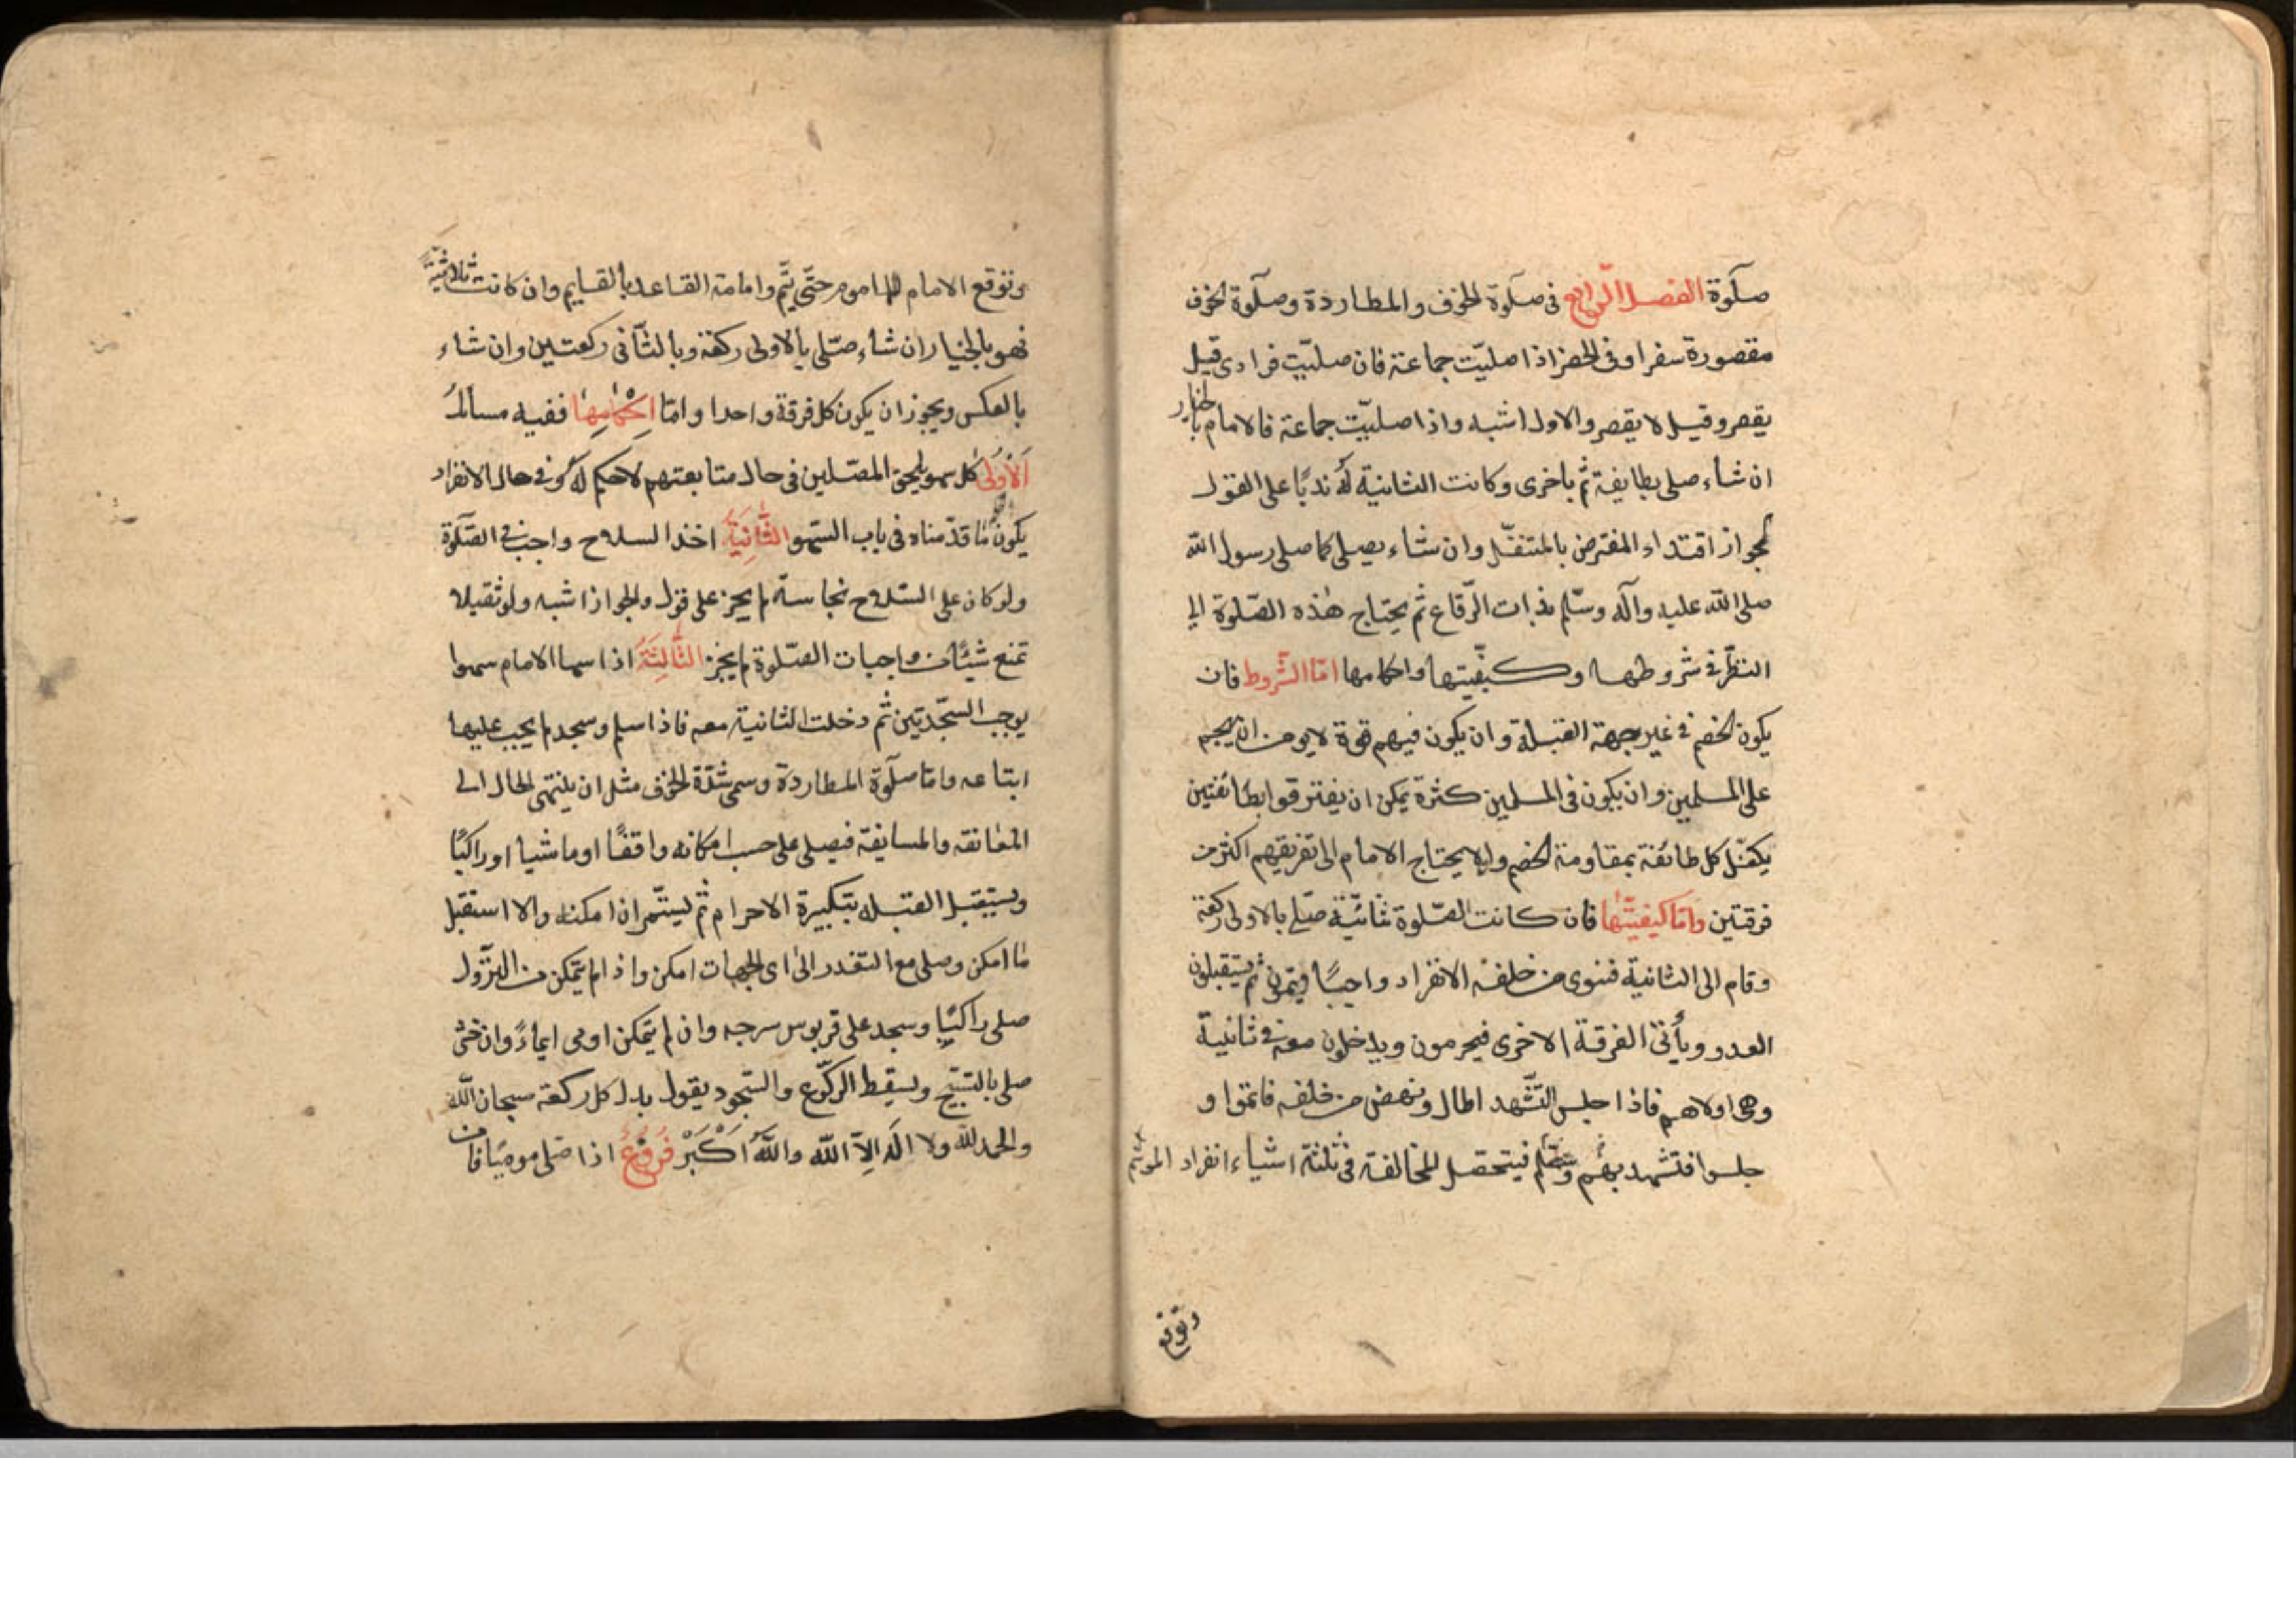 صلوة الفصل الرابع فى صلوة الخوف والمطاردة وصلوة الخوف
مقصورة سفرا وفى الحضر اذا صليّت جماعة فان صليّت فرادى قيل
يقصر وقيل لا يقصر والاول اشبه واذا صليّت جماعة فالامام بالخيار
ان شاء صلى بطايفة ثم باخرى وكانت الثانية له ندبًا على القول
بجواز اقتداء المفترض بالمتنفّل وان شاء يصلى كما صلى رسول الله
صلى الله عليه وآله وسلّم بذات الرّقاع ثم يحتاج هذه الصّلوة الى
النظر فى شروطها وكيفيّتها واحكامها امّا الشّروط فان
يكون الخصم فى غير جهة القبلة وان يكون فيهم قوة لا يومن ان يهجم
على المسلمين وان يكون فى المسلمين كثرة يمكن ان يفترقوا بطائفتين
يكفل كل طائفة بمقاومة الخصم وان لا يحتاج الامام الى تفريقهم اكثر من
فرقتين وامّا كيفيّتها فان كانت الصّلوة ثنائيّة صلى بالاولى ركعة
وقام الى الثانية فنوى من خلفه الانفراد واجبًا ويتمّون ثم يستقبلون
العدو ويأتى الفرقة الاخرى فيحرمون ويدخلون معه فى ثانيية
وهى اولاهم فاذا جلس للتّشهد اطال ونهض من خلفه فاتموا و
جلسوا فتشهد بهم وسلّم فيتحصل المخالفة فى ثلثة اشياء انفراد الموتم
وتوقع
وتوقع الامام للماموم حتّى يتمّ وامامة القاعد بالقايم وان كانت ثلاثيّةً
فهو بالخيار ان شاء صلّى بالاولى ركعة وبالثّانى ركعتين وان شاء
بالعكس ويجوز ان يكون كل فرقة واحدا وامّا احكامها ففيه مسائل
الاولى كل سهو يلحق المصّلين فى حال متابعتهم لا حكم له وفى حال الانفراد
يكون ما قدّمناه فى باب السّهو الثّانية اخذ السلاح واجب فى الصّلوة
ولو كان على السّلاح نجاسة لم يجز على قول والجواز اشبه ولو ثقيلا
تمنع شيئًا من واجبات الصّلوة لم يجز الثّالثة اذا سها الامام سهوا
يوجب السّجدتين ثم دخلت الثانية معه فاذا سلم وسجد لم يجب عليها
اتباعه وامّا صلوة المطاردة وسمى شدّة الخوف مثل ان ينتهى الحال الى
المعانقه والمسايفة فيصلى على حسب امكانه واقفًا او ماشيا او راكبًا
ويستقبل القبله بتكبيرة الاحرام ثم يستّمر ان امكنه والا استقبل
ما امكن وصلى مع التعذر الى اى الجهات امكن واذا لم يتمكن من النزول
صلى راكبًا وسجد على قربوس سرجه وان لم يتمكن اومى ايماءً وان خشى
صلى بالتسبيح ويسقط الركّوع والسّجود يقول بدل كل ركعة سبحان الله
والحمد لله ولا اله الّا الله والله اكبر فروع اذا صلى موميًا فامن